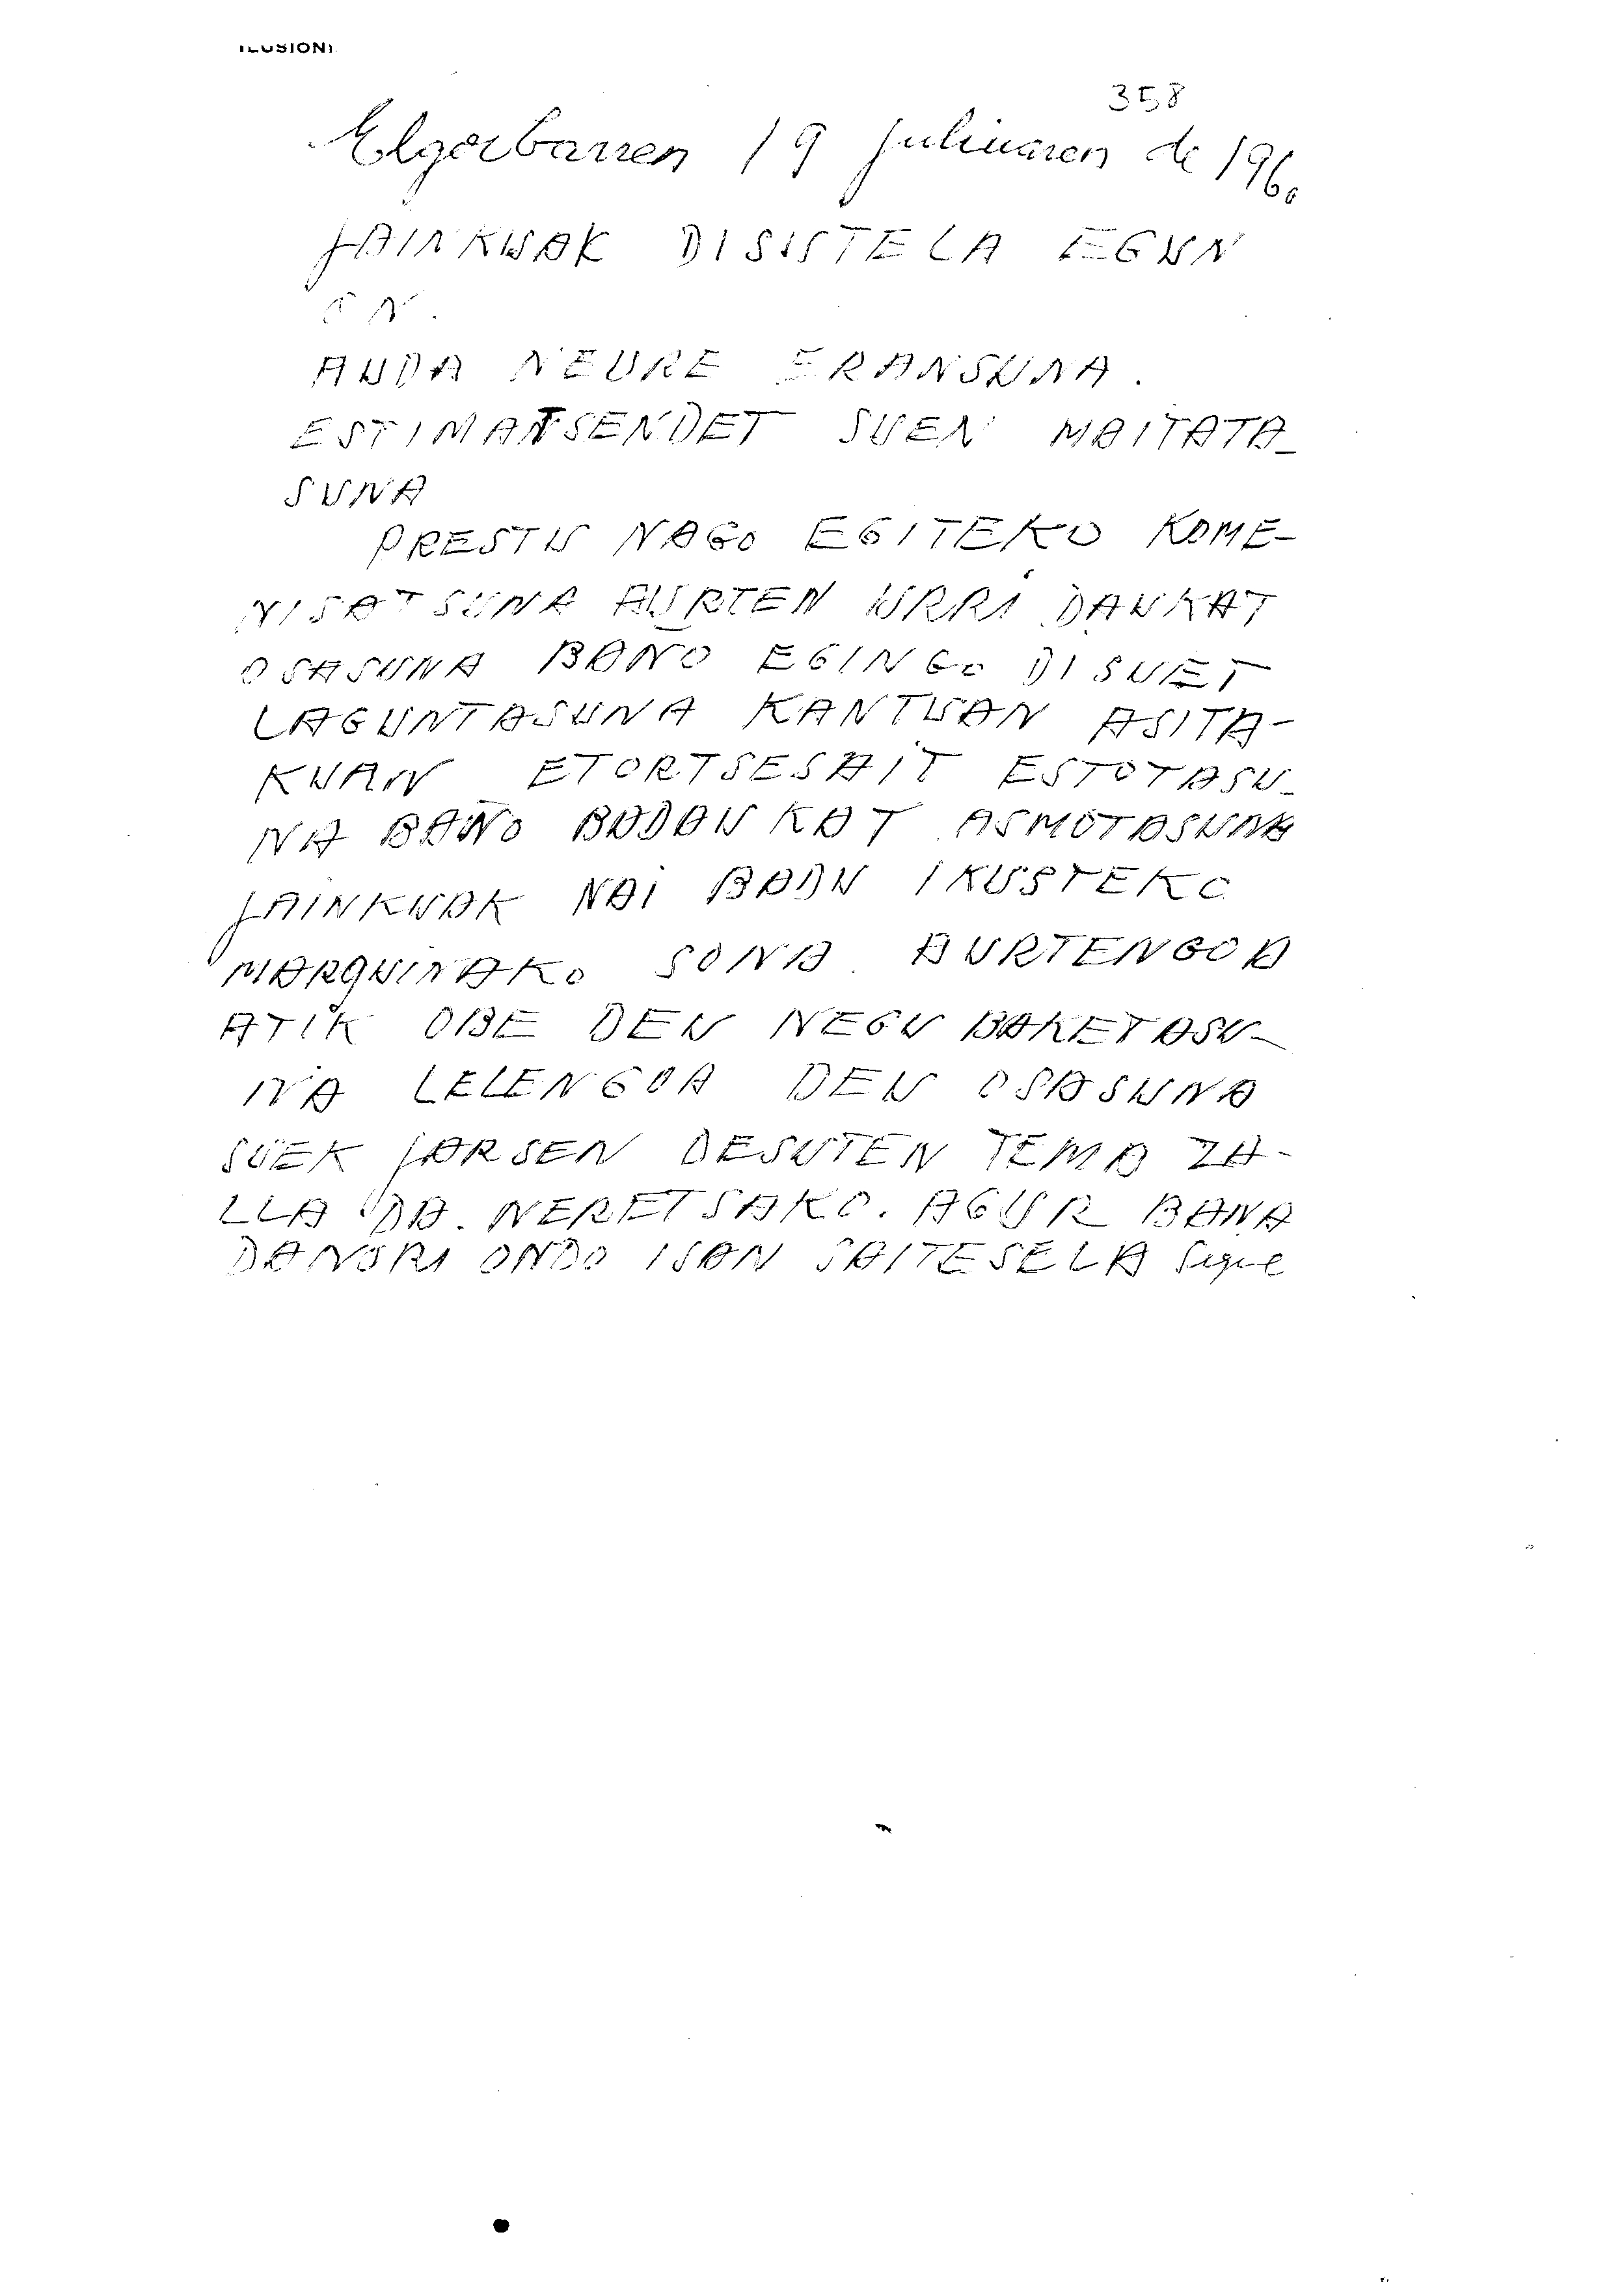 358
Elgoibarren 19 Juliuaren de 1960
JAINKUAK DISISTELA EGUN
ON.
AUDA NEURE ERANSUNA.
ESTIMATSENDET SUEN MAITATA-
SUNA
PRESTU NAGO EGITEKO KOME-
NISATSUNA AURTEN URRI DAUKAT
OSASUNA BAÑO EGINGO DISUET
LAGUNTASUNA KANTUAN ASITA-
KUAN ETORTSESAIT ESTOTASU-
NA BAÑO BADAUKAT ASMOTASUNA
JAINKUAK NAI BADU IKUSTEKO
MARQUINAKO SONA AURTENGOA
ATIK OBE DEU NEGU BAKETASU-
NA LELENGOA DEU OSASUNA
SUEK JARSEN DESUTEN TEMA ZA-
LLA DA NERETSAKO. AGUR BANA
DANORI ONDO ISAN SAITESELA Sigue